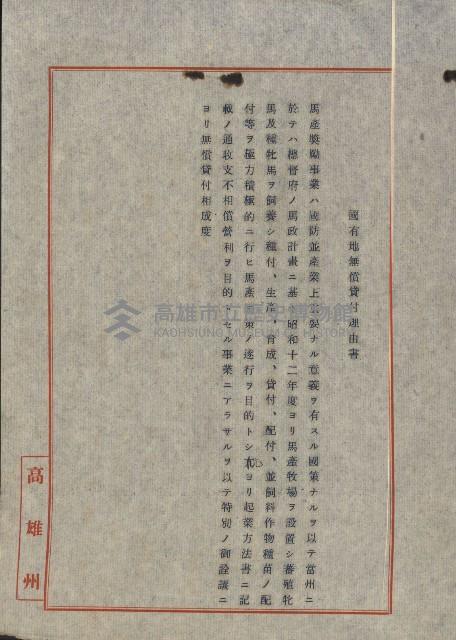 國有地無償貸付理由書
馬產奬勵事業ハ國防並產業上重要ナル意義ヲ有スル國策ナルヲ以テ當州ニ
於テハ總督府ノ馬政計畫ニ基キ昭和十二年度ヨリ馬產牧場ヲ設置シ蕃殖牝
馬及種牡馬ヲ飼養シ種付、生產、育成、貸付、配付、並飼料作物種苗ノ配
付等ヲ極力積極的ニ行ヒ馬產國策ノ遂行ヲ目的トシ居リ起業方法書ニ記
載ノ通收支不相償營利ヲ目的トセル事業ニアラサルヲ以テ特別ノ御詮議ニ
ヨリ無償貸付相成度
高雄州
高雄市立歷史博物館
KAOHSIUNG MUSEUM OF HISTORY